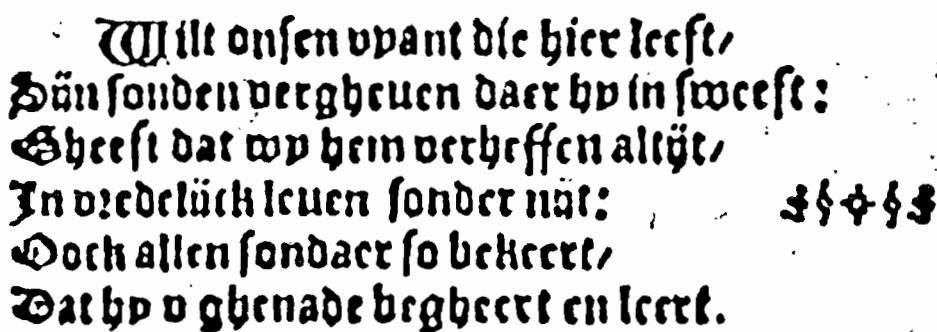 Wilt onsen vyant die hier leeft/
Sÿn sonden vergheuen daer hy in sweeft:
Gheeft dat wy hem verheffen altÿt/
In vredelÿck leuen sonder nÿt:
Oock allen sondaer so bekeert/
Dat hy v ghenade begheert en leert.